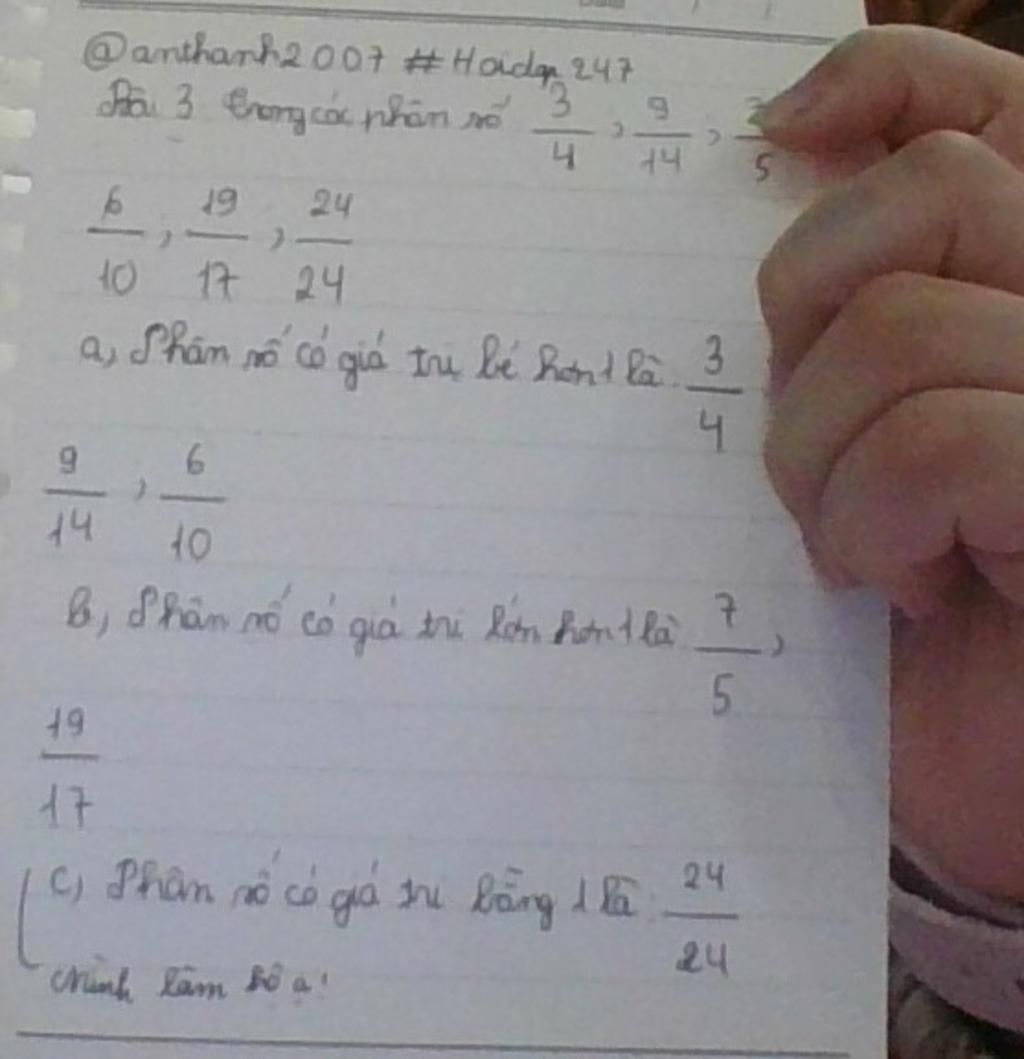 @anthanh2007 #Hoidap247
Bài 3 trong các phân số 3/4, 9/14, 7/5
6/10, 19/17, 24/24
a, Phân số có giá trị bé hơn 1 là 3/4
9/14, 6/10
b, Phân số có giá trị lớn hơn 1 là 7/5,
19/17
c, Phân số có giá trị bằng 1 là 24/24
mình làm hồ ạ!